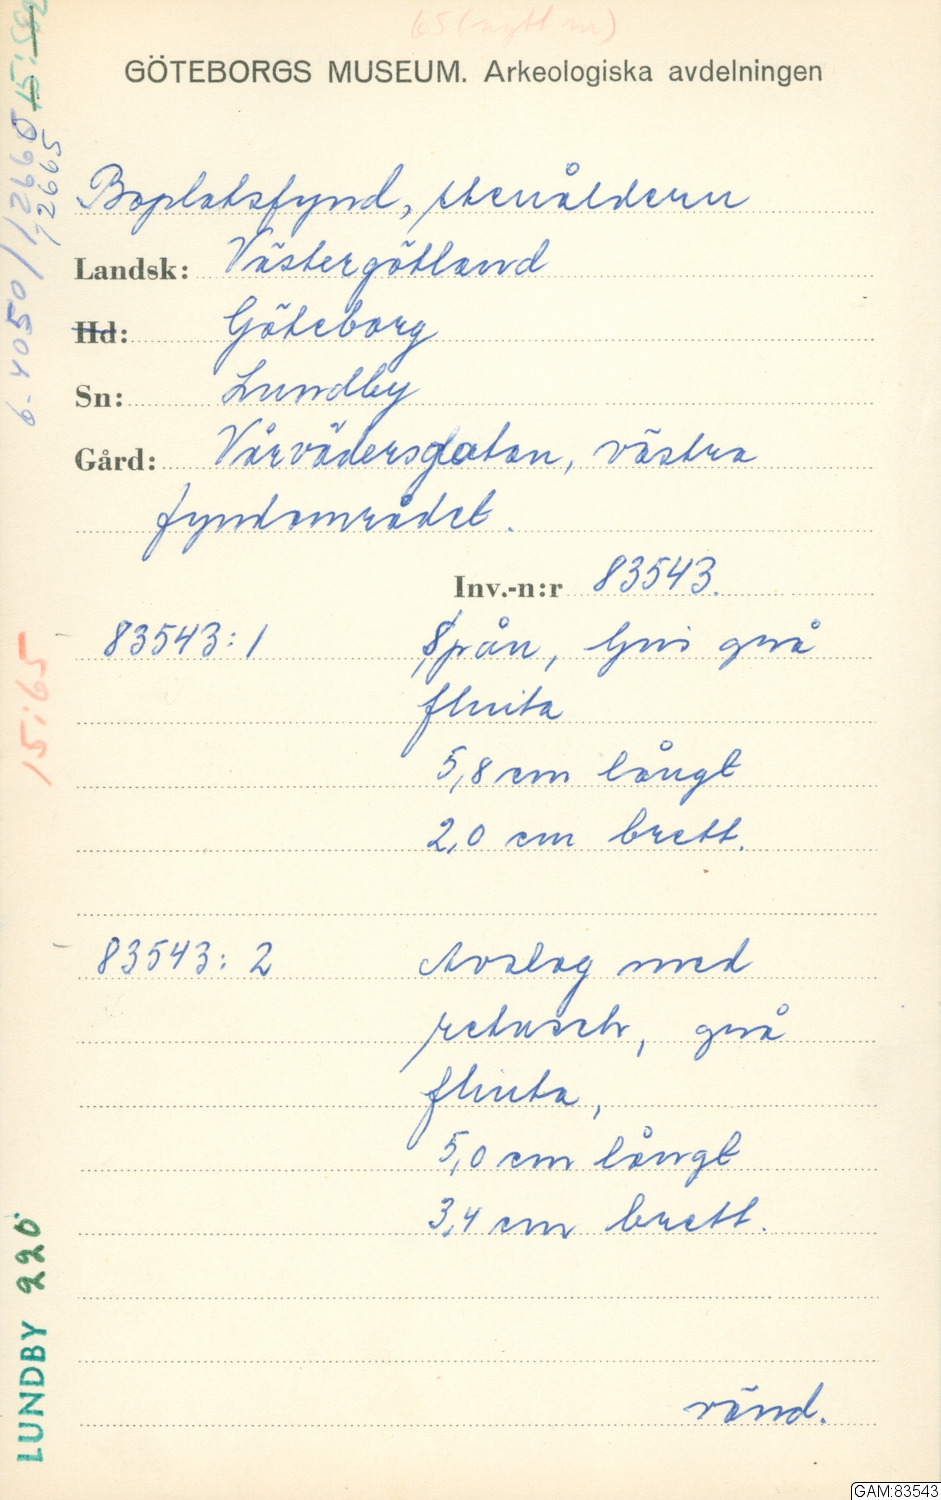 65 (nytt nr)
GÖTEBORGS MUSEUM. Arkeologiska avdelningen
Boplatsfynd, stenåldern
Landsk: Västergötland
Hd: Göteborg
Sn: Lundby
Gård: Vårvädersgatan, västra
fyndområdet.
Inv.-n:r 83543.
83543:1 Spån, ljus grå
flinta
5,8 cm långt
2,0 cm brett.
83543:2 Avslag med
retusch, grå
flinta,
5,0 cm långt
3,4 cm brett.
vänd.
15:65
LUNDBY 220
GAM:83543